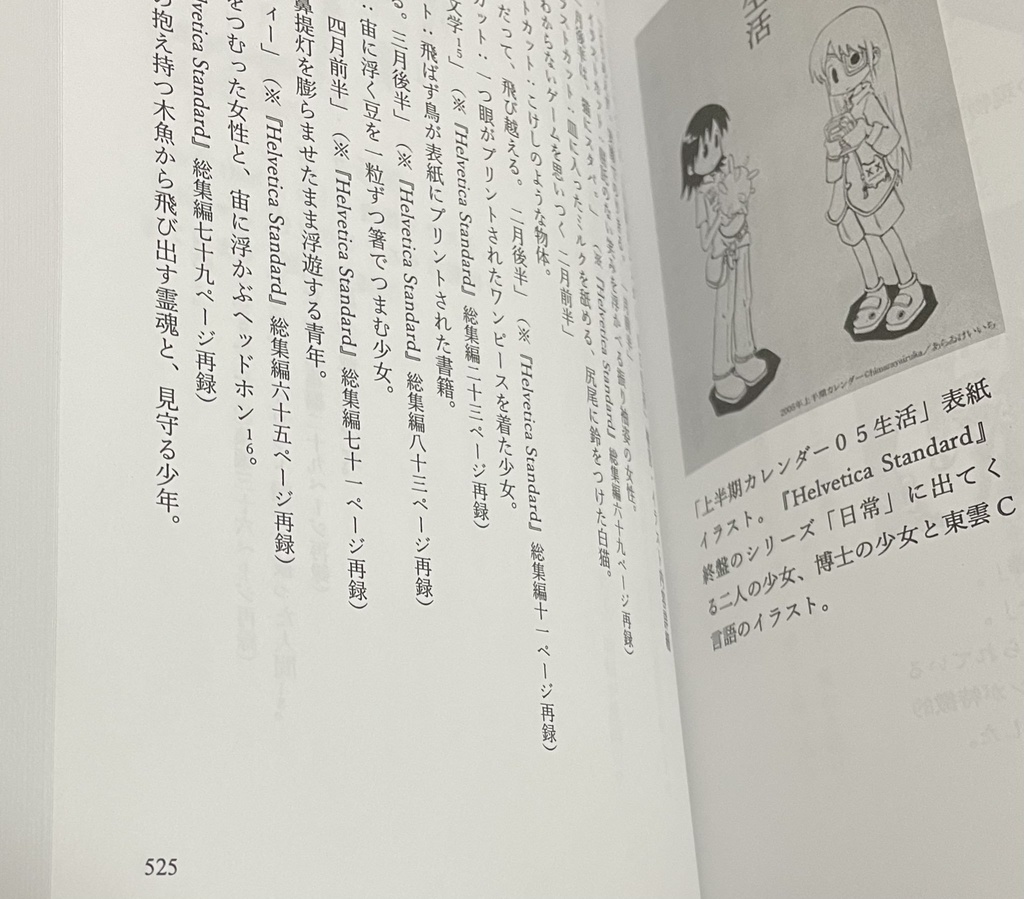 生活
あらゐけいいち
「上半期カレンダー05生活」表紙
イラスト。『Helvetica Standard』
終盤のシリーズ「日常」に出てく
る二人の少女、博士の少女と東雲C
言語のイラスト。
(※『Helvetica Standard』総集編六十九ページ再録)
ストカット:皿に入ったミルクを舐める、尻尾に鈴をつけた白猫。
わからないゲームを思いつく 二月前半」
トカット:こけしのような物体。
だって、飛び越える。 二月後半」(※『Helvetica Standard』総集編十一ページ再録)
カット:一つ眼がプリントされたワンピースを着た少女。
文学15」(※『Helvetica Standard』総集編二十三ページ再録)
ット:飛ばず鳥が表紙にプリントされた書籍。
る。三月後半」(※『Helvetica Standard』総集編八十三ページ再録)
:宙に浮く豆を一粒ずつ箸でつまむ少女。
四月前半」(※『Helvetica Standard』総集編七十一ページ再録)
鼻提灯を膨らませたまま浮遊する青年。
ィー」(※『Helvetica Standard』総集編六十五ページ再録)
をつむった女性と、宙に浮かぶヘッドホン16。
Helvetica Standard』総集編七十九ページ再録)
の抱え持つ木魚から飛び出す霊魂と、見守る少年。
525